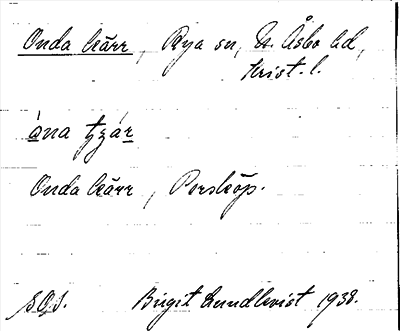 Onda kärr, Rya sn, N. Åsbo hd,
Krist. l.
ána tzár
Onda kärr, Perstorp.
SOS. Birgit Lundkvist 1938.